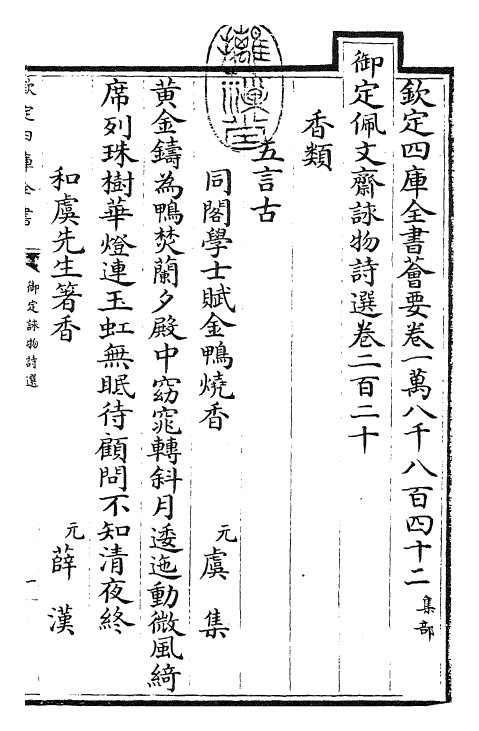 欽定四庫全書薈要卷一萬八千八百四十二 集部
御定佩文齋詠物詩選卷二百二十
香類
五言古
同閣學士賦金鴨燒香 元 虞集
黃金鑄為鴨焚蘭夕殿中窈窕轉斜月逶迤動微風綺
席列珠樹華燈連玉虹無眠待顧問不知清夜終
和虞先生箸香 元 薛漢
欽定四庫全書 御定詠物詩選 一